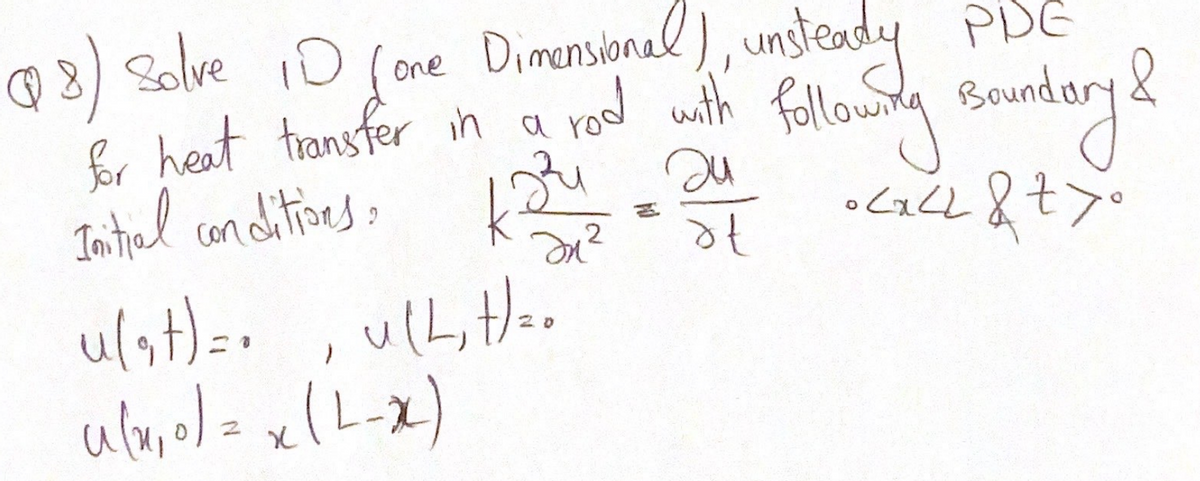 Q8) Solve 1D (one Dimensional), unsteady PDE
for heat transfer in a rod with following Boundary &
Initial conditions. k ∂²u/∂x² = ∂u/∂t 0<x<L & t>0
u(0,t)=0 , u(L,t)=0
u(x,0) = x(L-x)